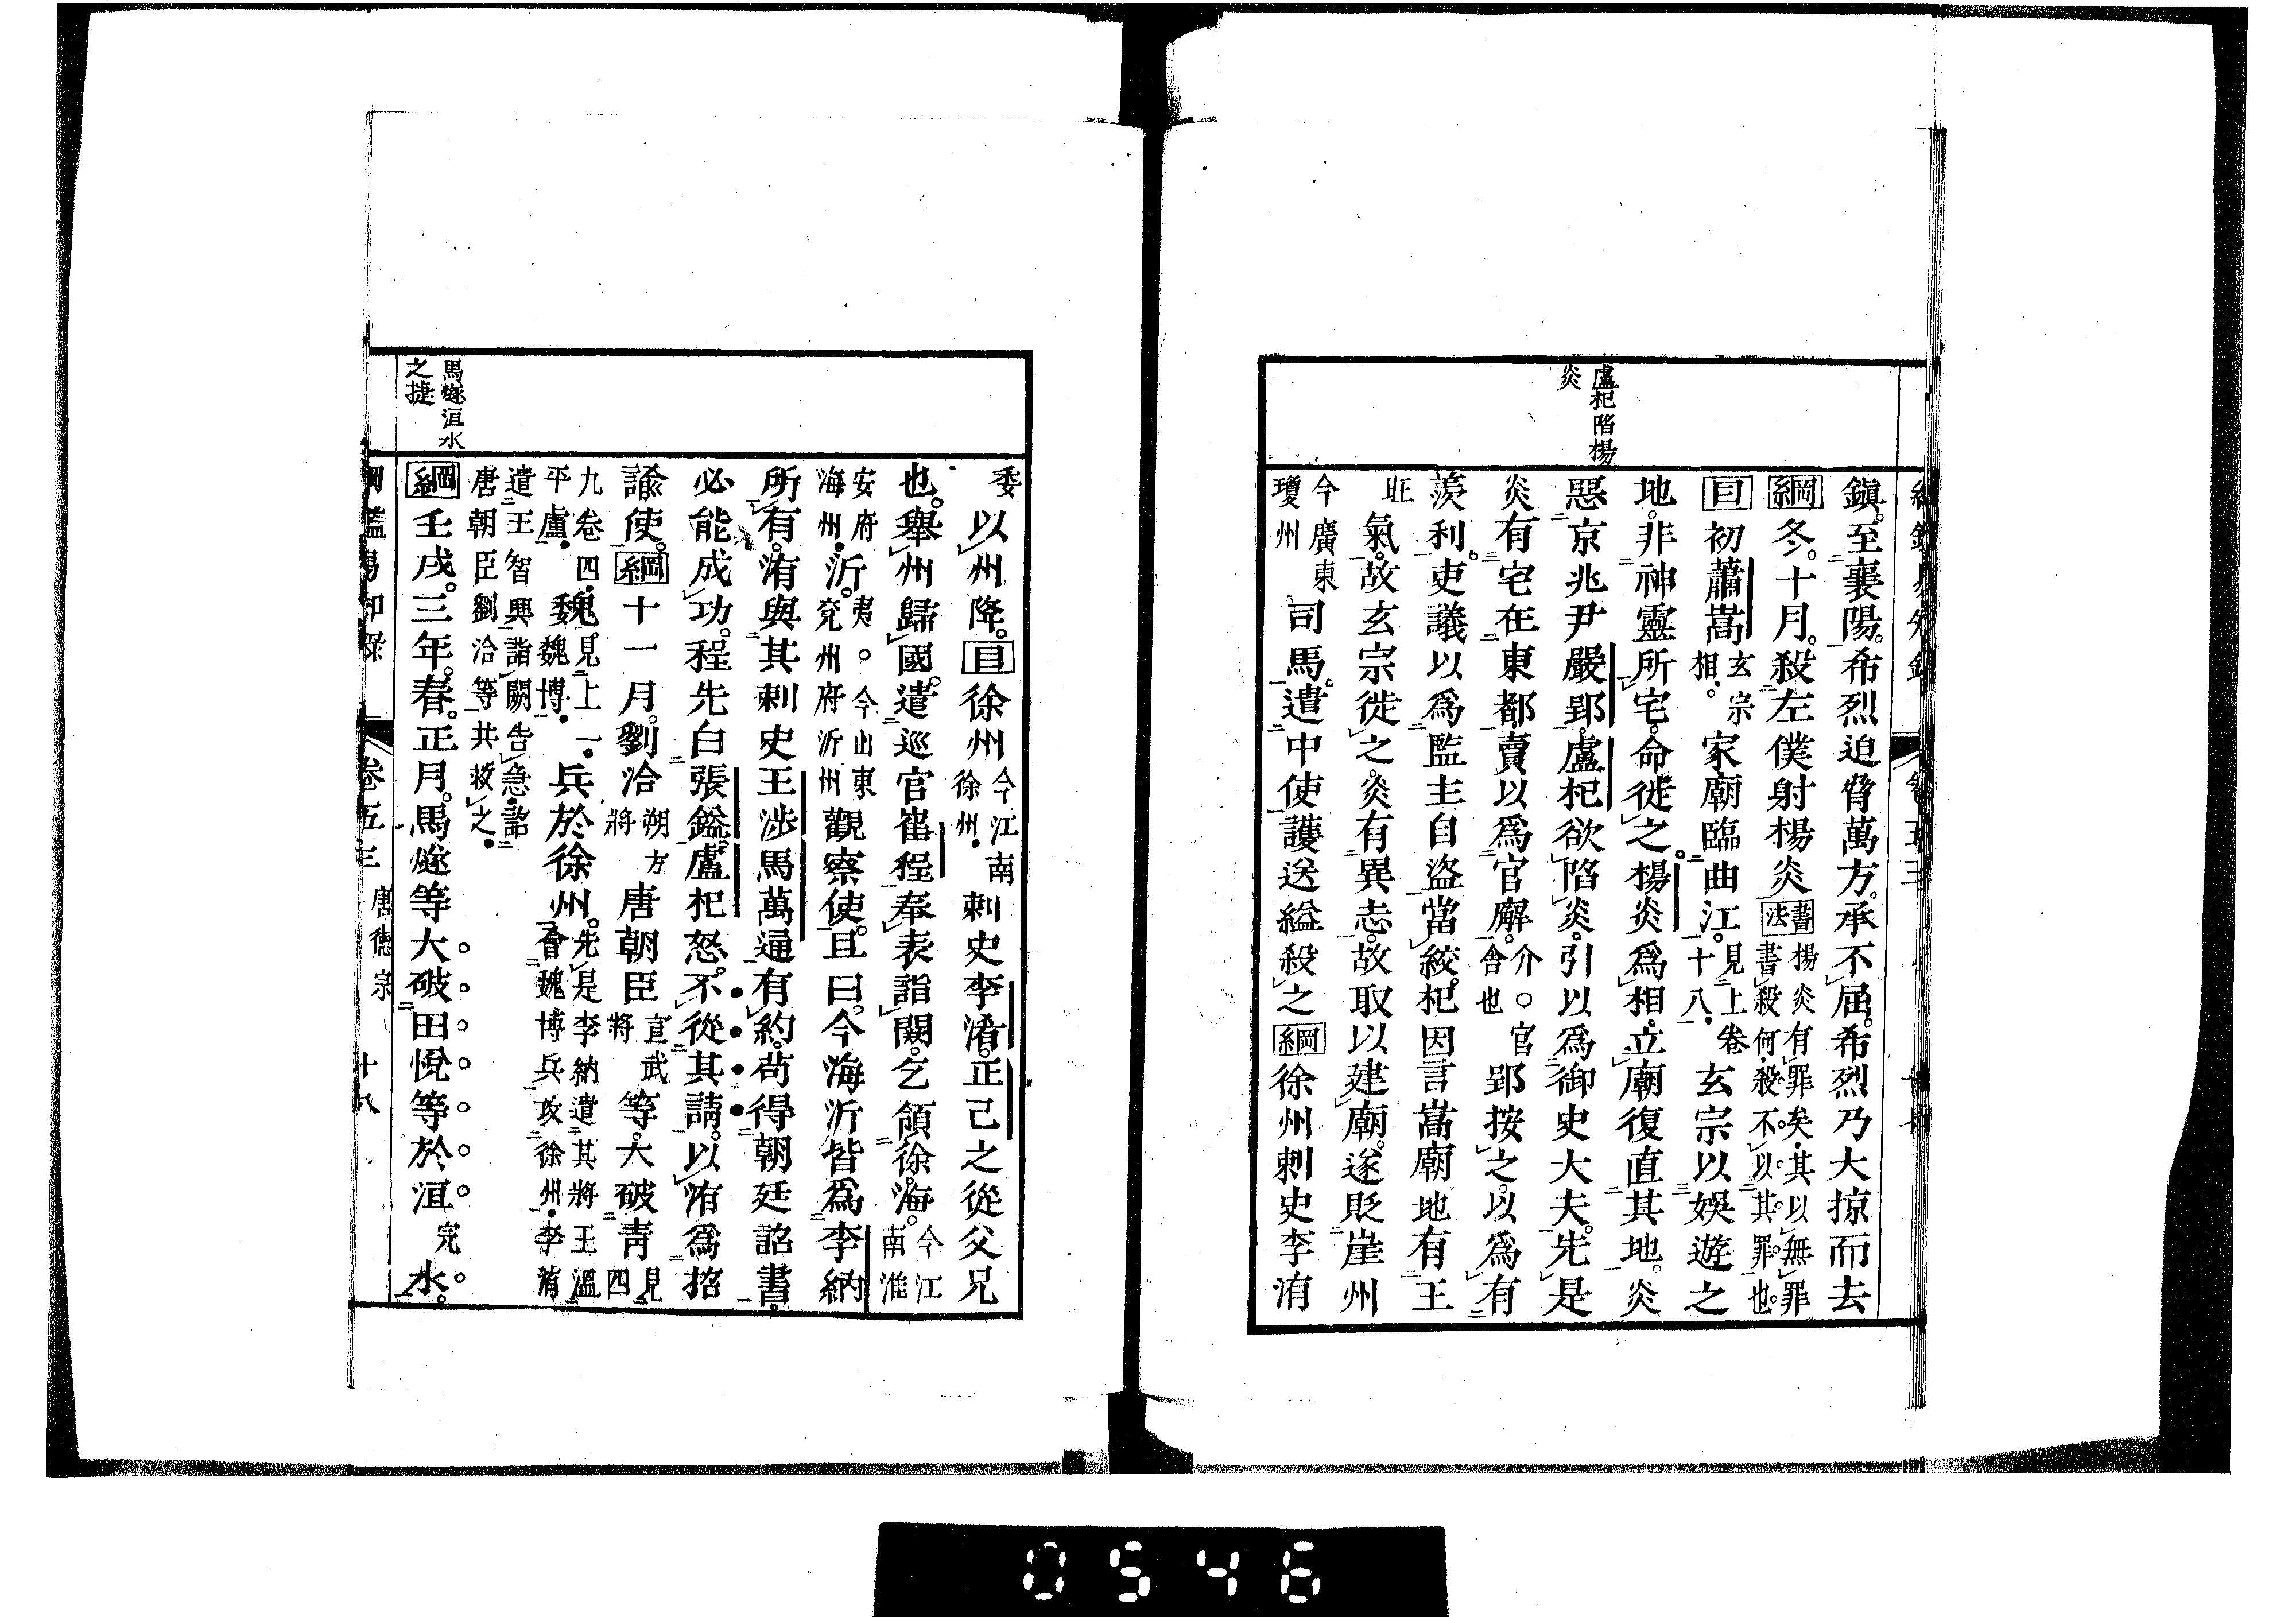 盧杞陷楊
炎
鎭。至襄陽。希烈迫脅萬方。承不屈。希烈乃大掠而去
綱冬。十月。殺左僕射楊炎書法楊炎有罪矣。其以無罪書殺何。殺不以其罪也。
目初蕭嵩玄宗相。家廟臨曲江。見上卷十八。玄宗以娛遊之
地。非神靈所宅。命徙之。楊炎爲相。立廟復直其地。炎
惡京兆尹嚴郢。盧杞欲陷炎。引以爲御史大夫。先是
炎有宅在東都。賣以爲官廨。介。○官舍也郢按之。以爲有
羨利。吏議以爲監主自盜。當絞。杞因言嵩廟地有王
旺氣。故玄宗徙之。炎有異志。故取以建廟。遂貶崖州
今廣東瓊州司馬。遣中使護送縊殺之綱徐州刺史李洧
委以州降。目徐州今江南徐州。刺史李洧。正己之從父兄
也。舉州歸國。遣巡官崔程奉表詣闕。乞領徐。海。今江南淮
安府海州。沂。夷。○今山東兗州府沂州觀察使。且曰。今海沂皆爲李納
所有。洧與其刺史王渉馬萬通有約。苟得朝廷詔書。
必能成功。程先白張鎰。盧杞怒。不從其請。以洧爲招
諭使。綱十一月。劉洽朔方將唐朝臣宣武將等。大破靑見四
九卷四平盧。魏見上一。委魏博。兵於徐州。先是李納遣其將王溫會魏博兵攻徐州。李洧
遣王智興詣闕告急。詔唐朝臣劉洽等共救之。
綱壬戌。三年。春。正月。馬燧等大破田悅等於洹完水。
馬燧洹水
之捷
卷五三 唐德宗 十八